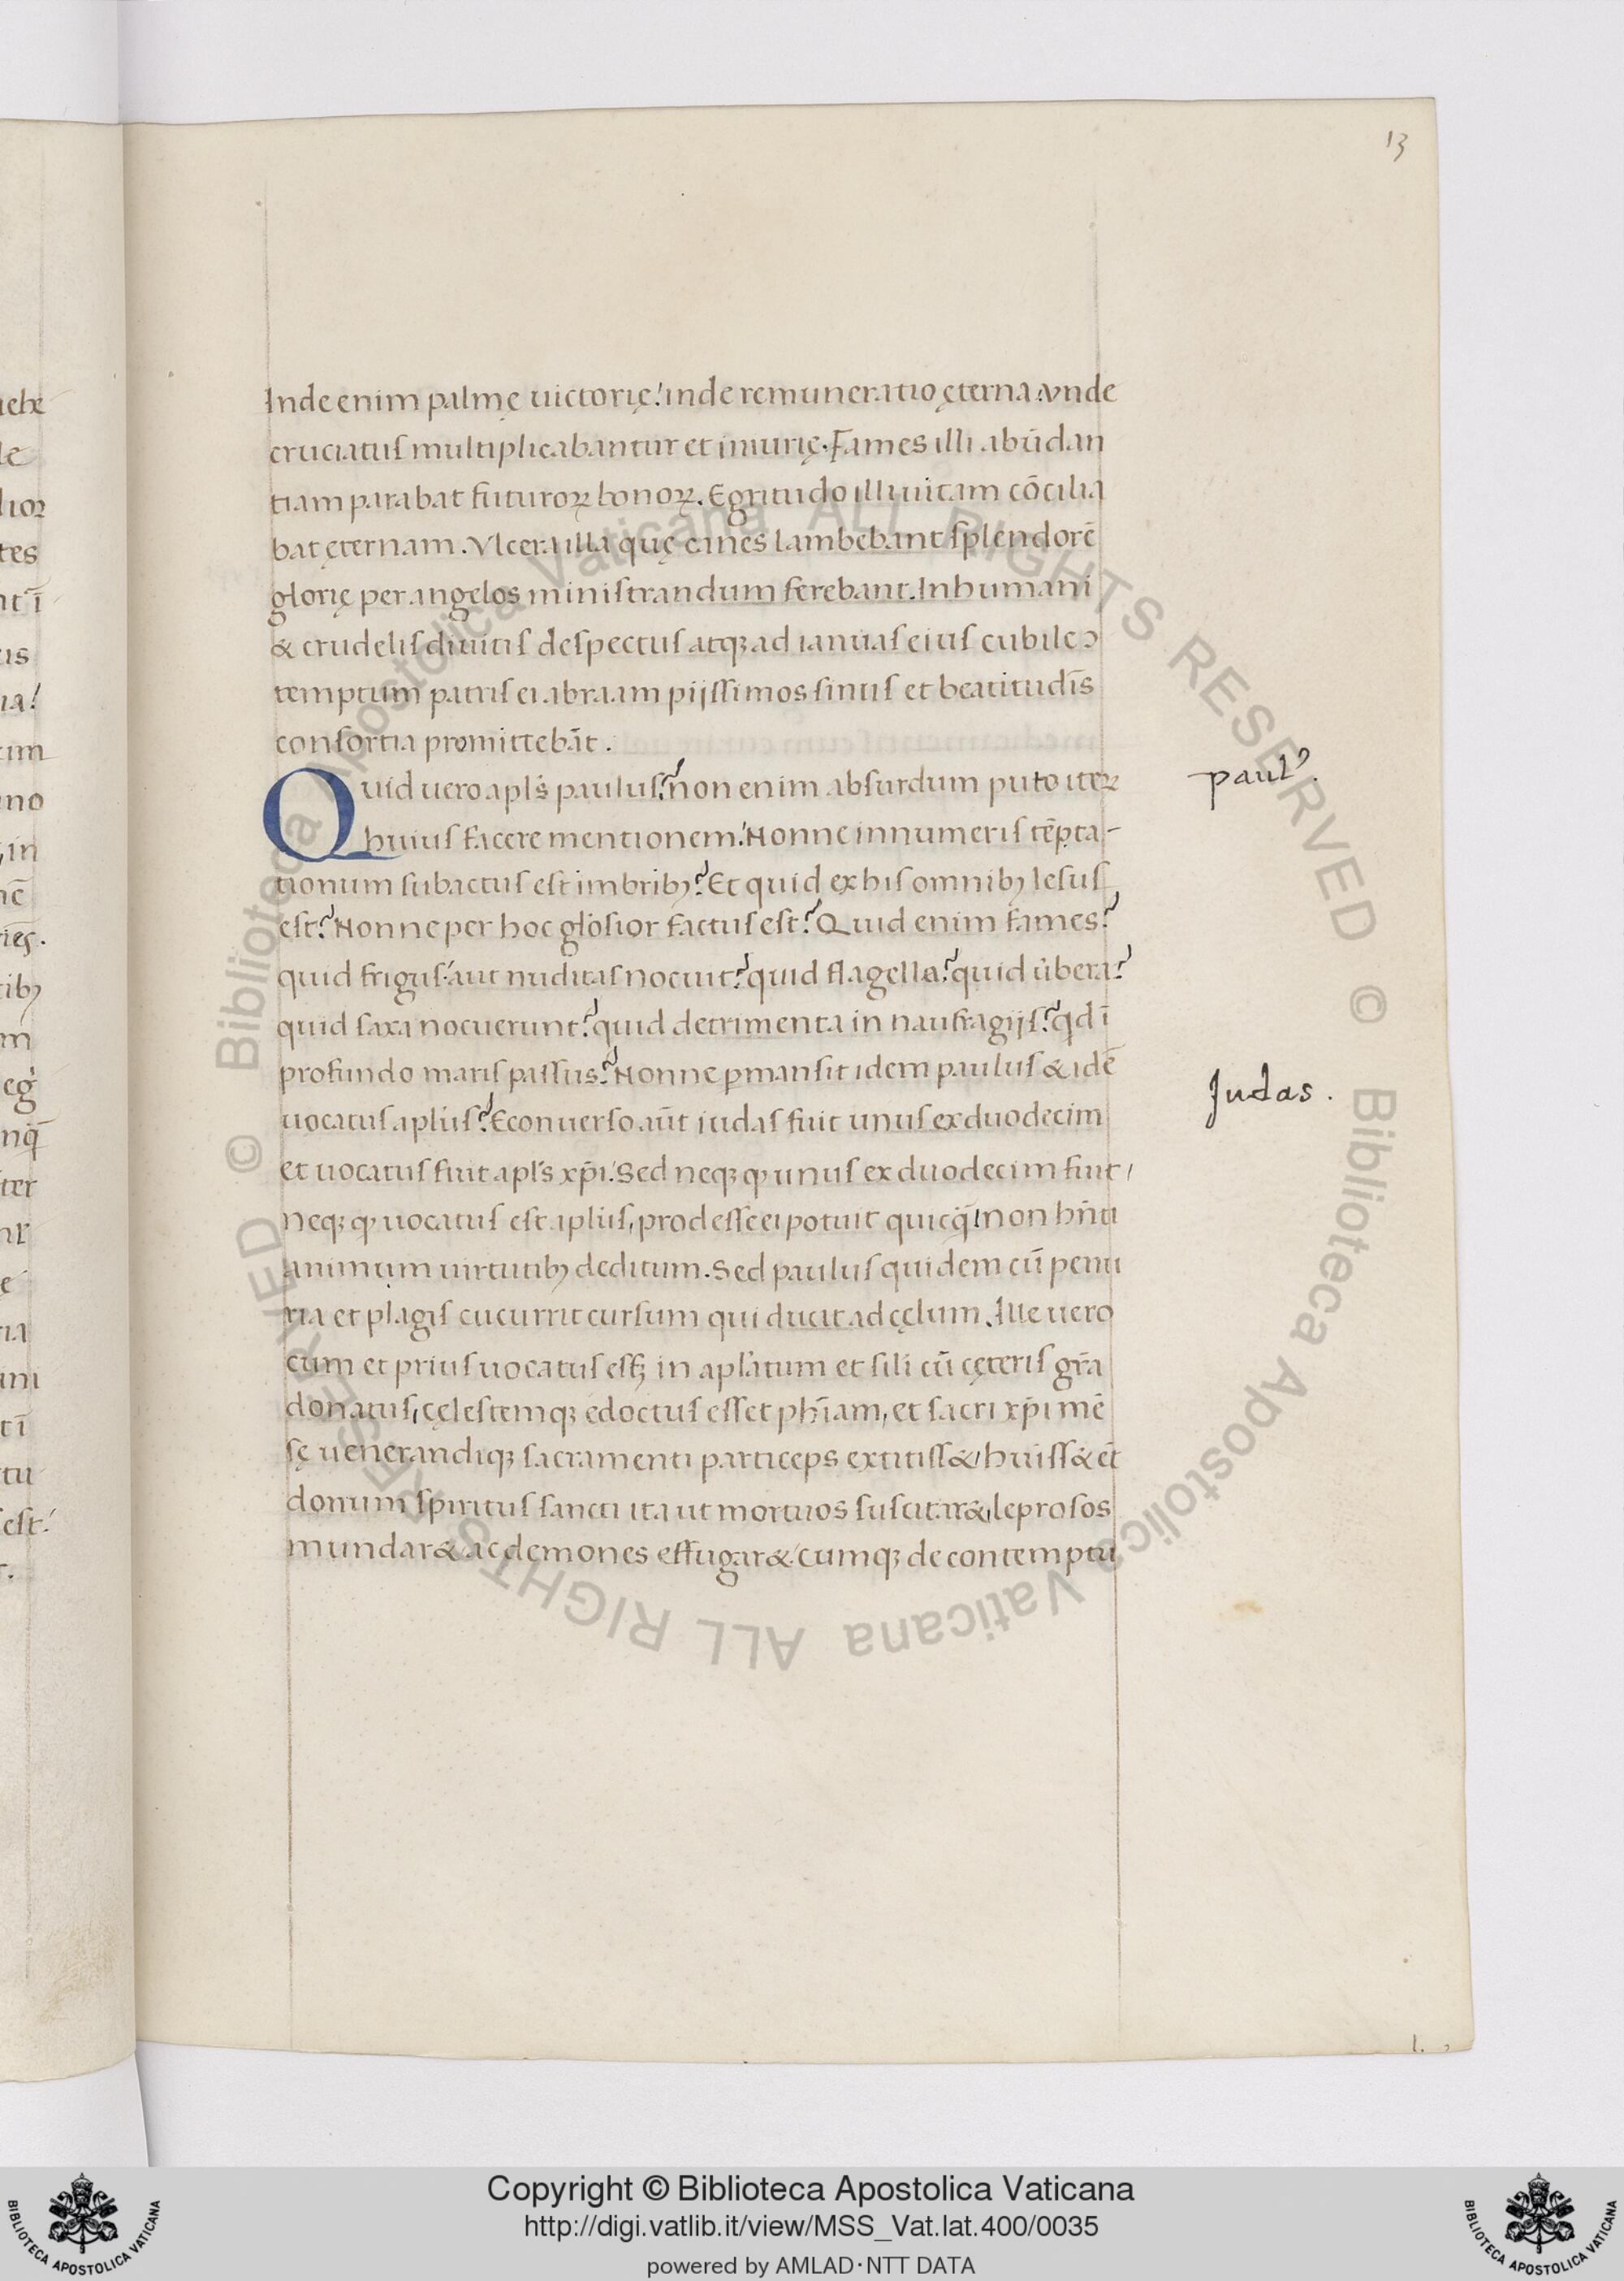 13
Inde enim palmę uictorię! inde remuneratio ęterna: unde
cruciatus multiplicabantur et iniurię. Fames illi abūdan
tiam parabat futuroꝝ bonoꝝ. Egritudo illi uitam cōcilia
bat ęternam. Vlcera illa quę canes lambebant splendorē
glorię per angelos ministrandum ferebant. Inhumani
& crudelis diuitis despectus atqꝫ ad ianuas eius cubile ↄ
temptum patris ei abraam pijssimos sinus et beatitudīs
consortia promittebāt.
Quid uero apl̓s paulus? non enim absurdum puto iteꝝ
huius facere mentionem! Nonne innumeris tēpta-
tionum subactus est imbribꝫ? Et quid ex his omnibꝫ lesus
est? Nonne per hoc gl̓osior factus est? Quid enim fames?
quid frigus! aut nuditas nocuit? quid flagella? quid ūbera?
quid saxa nocuerunt? quid detrimenta in naufragijs? qd ī
profundo maris passus? Nonne ꝑmansit idem paulus & idē
uocatus apl̓us? Econuerso aūt iudas fuit unus ex duodecim
et uocatus fuit apl̓s xp̄i! Sed neqꝫ ꝙ unus ex duodecim fuit,
neqꝫ ꝙ uocatus est apl̓us, prodesse ei potuit quicq̄ non hn̄ti
animum uirtutibꝫ deditum. Sed paulus quidem cū penu
ria et plagis cucurrit cursum qui ducit ad cęlum. Ille uero
cum et prius uocatus essꝫ in apl̓atum et sil̓i cū cęteris gr̄a
donatus, cęlestemqꝫ edoctus esset ph̄iam, et sacri xp̄i mē
sę uenerandiqꝫ sacramenti particeps extitiss&, huiss& et
donum spiritus sancti ita ut mortuos suscitar&, leprosos
mundar& ac demones effugar& cumqꝫ de contemptu
paulꝰ.
Judas.
© Biblioteca Apostolica Vaticana ALL RIGHTS RESERVED © Biblioteca Apostolica Vaticana ALL RIGHTS RESERVED
Copyright © Biblioteca Apostolica Vaticana
http://digi.vatlib.it/view/MSS_Vat.lat.400/0035
powered by AMLAD·NTT DATA
BIBLIOTECA APOSTOLICA VATICANA
BIBLIOTECA APOSTOLICA VATICANA